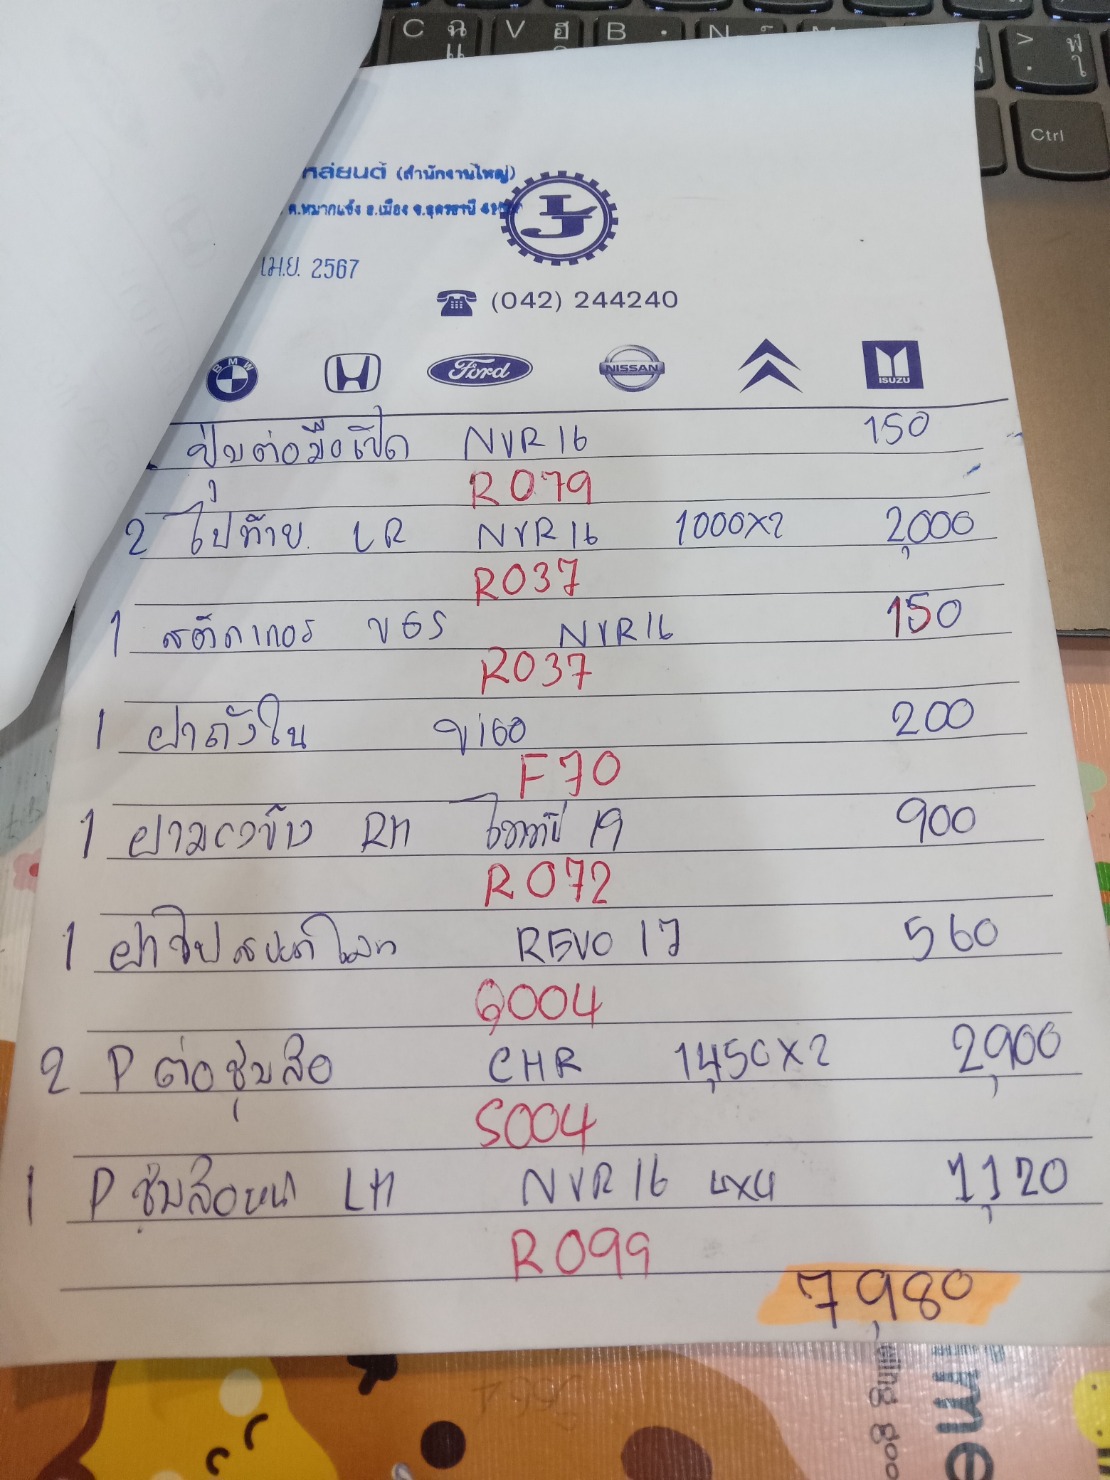 C ฉ แ V ฮ B N M > ฬ ใ .
Ctrl
หล่ยนต์ (สำนักงานใหญ่)
ต.หมากแข้ง อ.เมือง จ.อุดรธานี
เม.ย. 2567
(042) 244240
BMW Ford NISSAN ISUZU
ปุ่มต่อมือเปิด NVR16 150
R079
2 ไฟท้าย LR NVR16 1000x2 2,000
R037
1 สติกเกอร์ VGS NVR16 150
R037
1 ฝาถังใน วีโก้ 200
F70
1 ฝามองข้าง RH 19 900
R072
1 REVO 17 560
Q004
2 P ต่อซุ้มล้อ CHR 1,450x2 2,900
S004
1 P ซุ้มล้อหน้า LH NVR16 4x4 1,120
R099
7,980